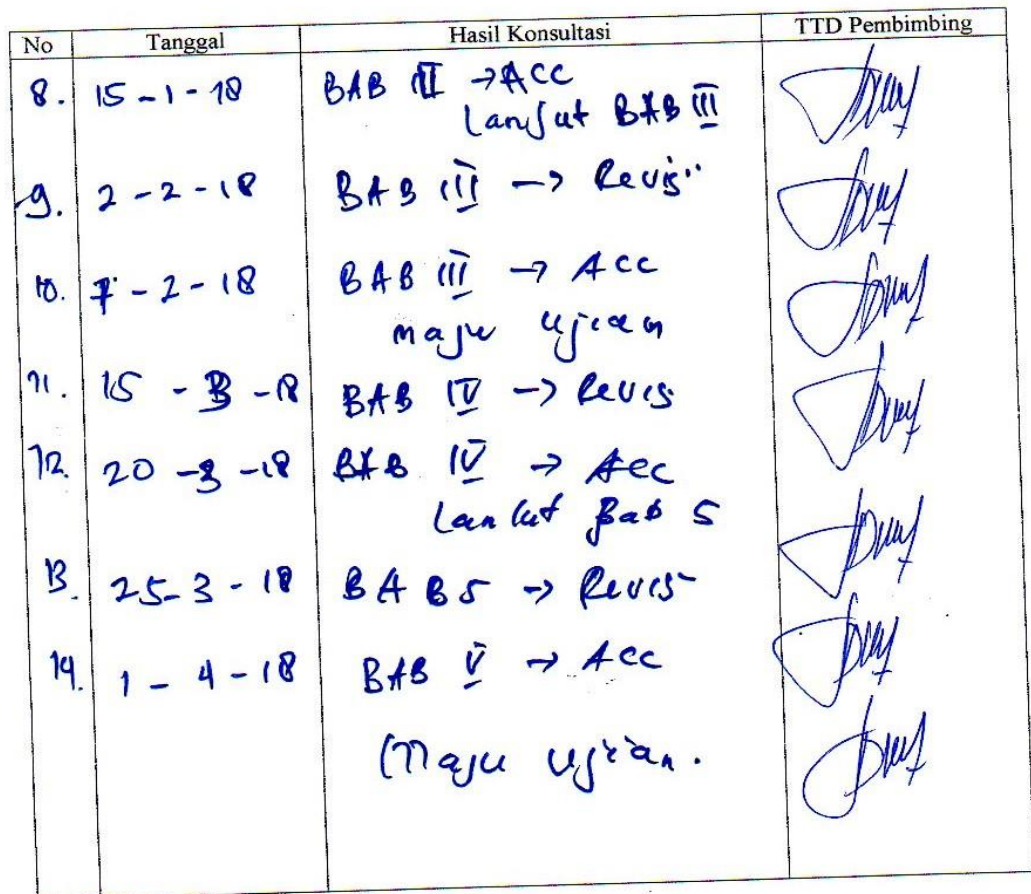 No Tanggal Hasil Konsultasi TTD Pembimbing
8. 15-1-18 BAB II → ACC
Lanjut BAB III
9. 2-2-18 BAB III → Revisi
10. 7-2-18 BAB III → ACC
maju ujian
11. 15-3-18 BAB IV → Revis
12. 20-3-18 BAB IV → Acc
Lanjut Bab 5
13. 25-3-18 BAB 5 → Revis
14. 1-4-18 BAB V → Acc
Maju ujian.